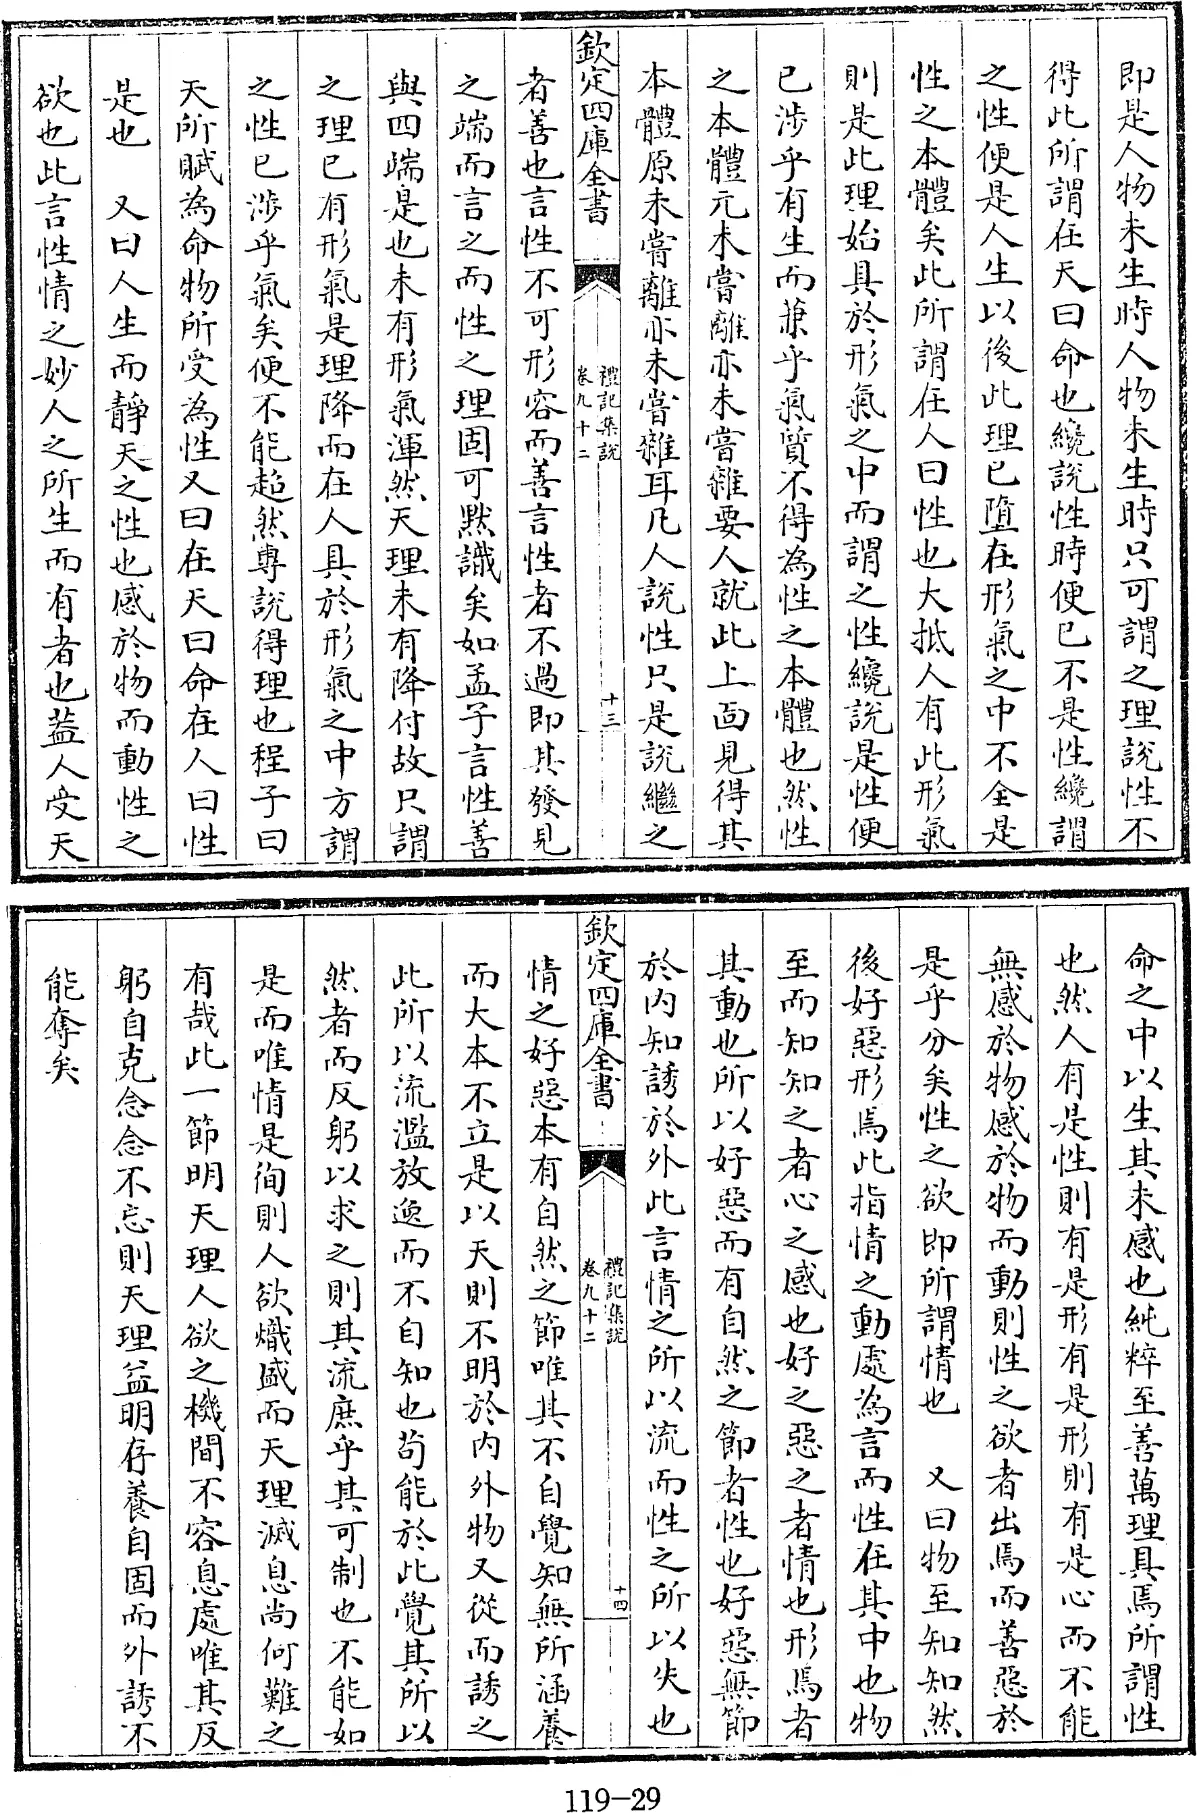 即是人物未生時人物未生時只可謂之理說性不
得此所謂在天曰命也纔說性時便已不是性纔謂
之性便是人生以後此理已墮在形氣之中不全是
性之本體矣此所謂在人曰性也大抵人有此形氣
則是此理始具於形氣之中而謂之性纔說是性便
已涉乎有生而兼乎氣質不得為性之本體也然性
之本體元未嘗離亦未嘗雜要人就此上面見得其
本體原未嘗離亦未嘗雜耳凡人說性只是說繼之
欽定四庫全書
禮記集說
卷九十二
十三
者善也言性不可形容而善言性者不過即其發見
之端而言之而性之理固可默識矣如孟子言性善
與四端是也未有形氣渾然天理未有降付故只謂
之理已有形氣是理降而在人具於形氣之中方謂
之性已涉乎氣矣便不能超然專說得理也程子曰
天所賦為命物所受為性又曰在天曰命在人曰性
是也 又曰人生而靜天之性也感於物而動性之
欲也此言性情之妙人之所生而有者也蓋人受天
命之中以生其未感也純粹至善萬理具焉所謂性
也然人有是性則有是形有是形則有是心而不能
無感於物感於物而動則性之欲者出焉而善惡於
是乎分矣性之欲即所謂情也 又曰物至知知然
後好惡形焉此指情之動處為言而性在其中也物
至而知知之者心之感也好之惡之者情也形焉者
其動也所以好惡而有自然之節者性也好惡無節
於內知誘於外此言情之所以流而性之所以失也
欽定四庫全書
禮記集說
卷九十二
十四
情之好惡本有自然之節唯其不自覺知無所涵養
而大本不立是以天則不明於內外物又從而誘之
此所以流濫放逸而不自知也苟能於此覺其所以
然者而反躬以求之則其流庶乎其可制也不能如
是而唯情是徇則人欲熾盛而天理滅息尚何難之
有哉此一節明天理人欲之機間不容息處唯其反
躬自克念念不忘則天理益明存養自固而外誘不
能奪矣
119-29